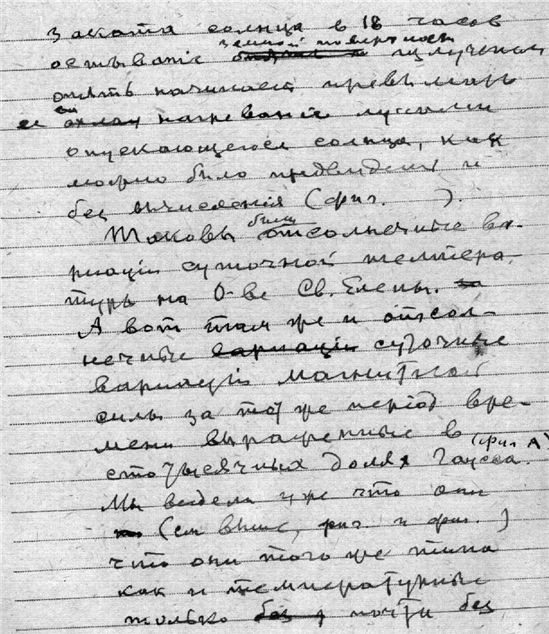 заката солнца в 18 часов
земной поверхности
остывание излучением
опять начинает превышать
ея нагревание лучами
опускающегося солнца, как
можно было предвидеть и
без вычисления (фиг. ).
Таковы были отсолнечные ва-
риаціи суточной темпера-
туры на О-ве Св. Елены.
А вот там же и отсол-
нечные вариаціи суточные
вариаціи магнитной
силы за тот же період вре-
мени выраженные в (фиг А)
стотысячных долях Гаусса.
Мы видели уже что они
(см выше, фиг. и фиг. )
что они того же типа
как и температурные
только без почти без